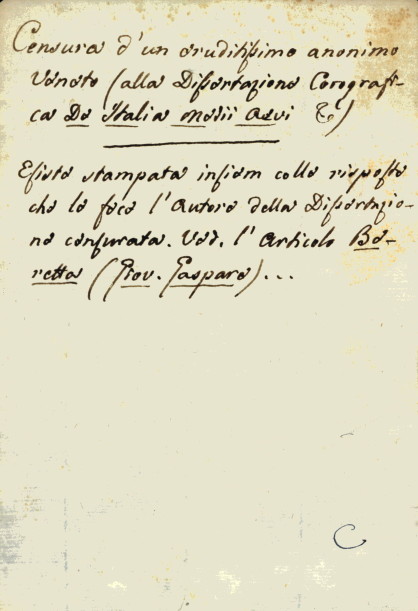 Censura d'un eruditissimo anonimo
Veneto (alla Dissertazione Corografi-
ca De Italia medii aevi &)
Esiste stampata insiem colle risposte
che le fece l'Autore della Dissertazio-
ne censurata. Ved. l'Articolo Be-
retta (Giov. Gaspare)...
C